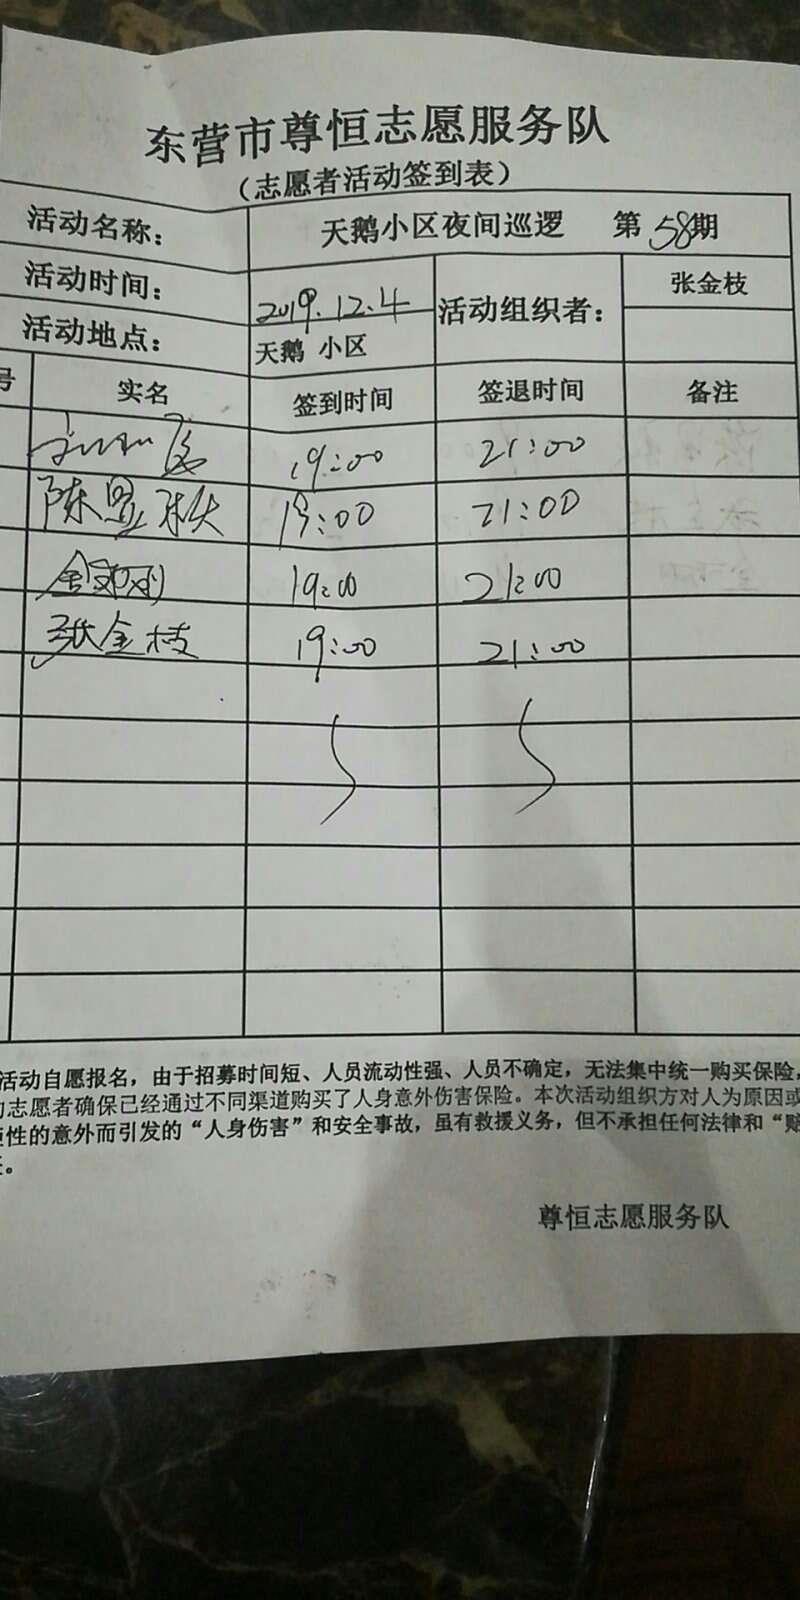 东营市尊恒志愿服务队
（志愿者活动签到表）
活动名称： 天鹅小区夜间巡逻 第58期
活动时间： 2019.12.4 活动组织者： 张金枝
活动地点： 天鹅 小区
号 实名 签到时间 签退时间 备注
19:00 21:00
陈显 19:00 21:00
19:00 21:00
张金枝 19:00 21:00
活动自愿报名，由于招募时间短、人员流动性强、人员不确定，无法集中统一购买保险，
志愿者确保已经通过不同渠道购买了人身意外伤害保险。本次活动组织方对人为原因或
性的意外而引发的“人身伤害”和安全事故，虽有救援义务，但不承担任何法律和“赔
。
尊恒志愿服务队